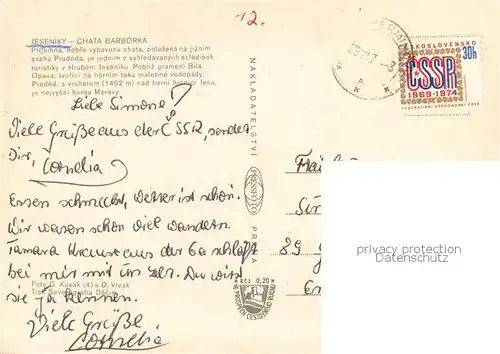 12.
JESENÍKY – CHATA BARBORKA
Příjemná, dobře vybavená chata, položená na jižním
svahu Praděda, je jedním z vyhledávaných středisek
turistiky v Hrubém Jeseníku. Poblíž pramení Bílá
Opava, tvořící na horním toku malebné vodopády.
Praděd, s vrcholem (1492 m) nad horní hranicí lesa,
je nejvyšší horou Moravy.
Liebe Simone!
Viele Grüße aus der ČSSR, sendet
Dir, Cornelia
Essen schmeckt, Wetter ist schön.
Wir waren schon viel wandern.
Tamara Krause aus der 6a schläft
bei mir mit im Zelt. Du wirst
sie ja kennen.
Viele Grüße
Cornelia
Foto D. Kusák (4) a D. Vrzak
Tisk Severografia Děčín
NAKLADATELSTVÍ
PRESSFOTO
PRAHA
Kčs 0,20
ČESKOSLOVENSKO
30h
ČSSR
1969-1974
89
privates Overlay
protected Copyright